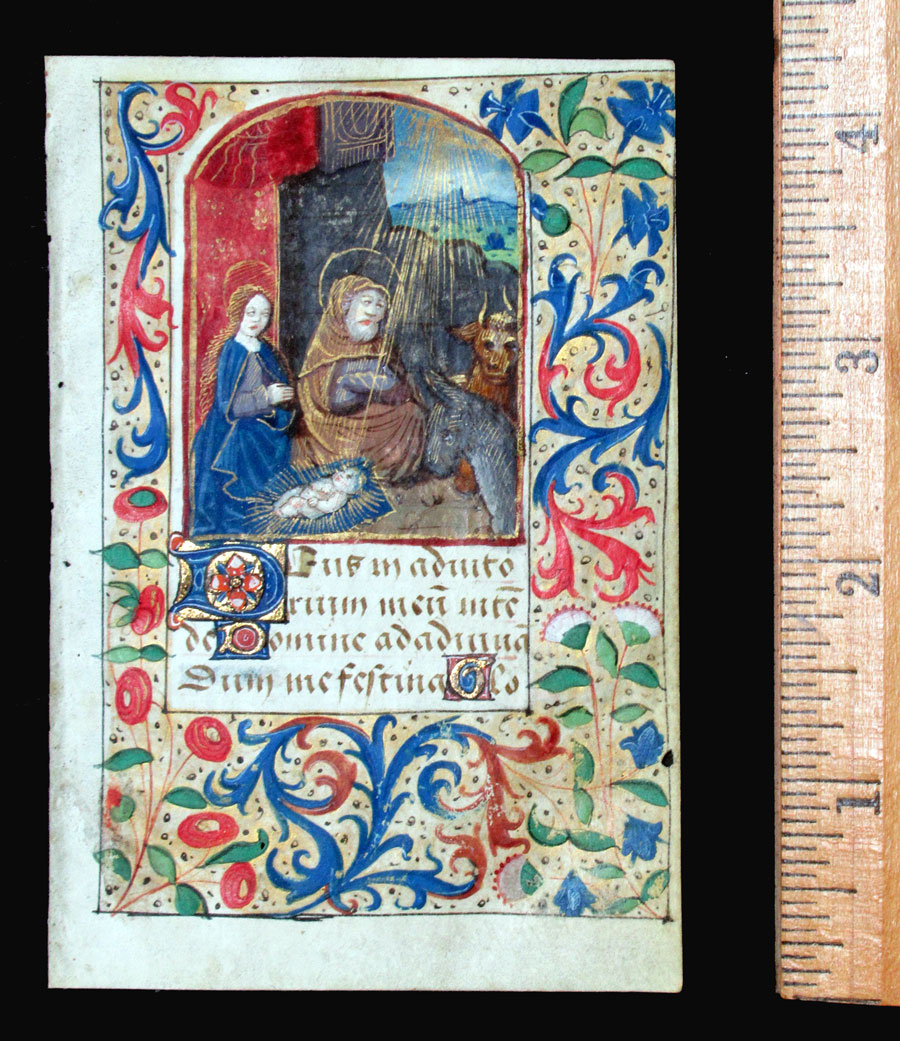 Deus in adiuto
rium meū intē
de Domine ad adiuuā
dum me festina Glo
4
3
2
1